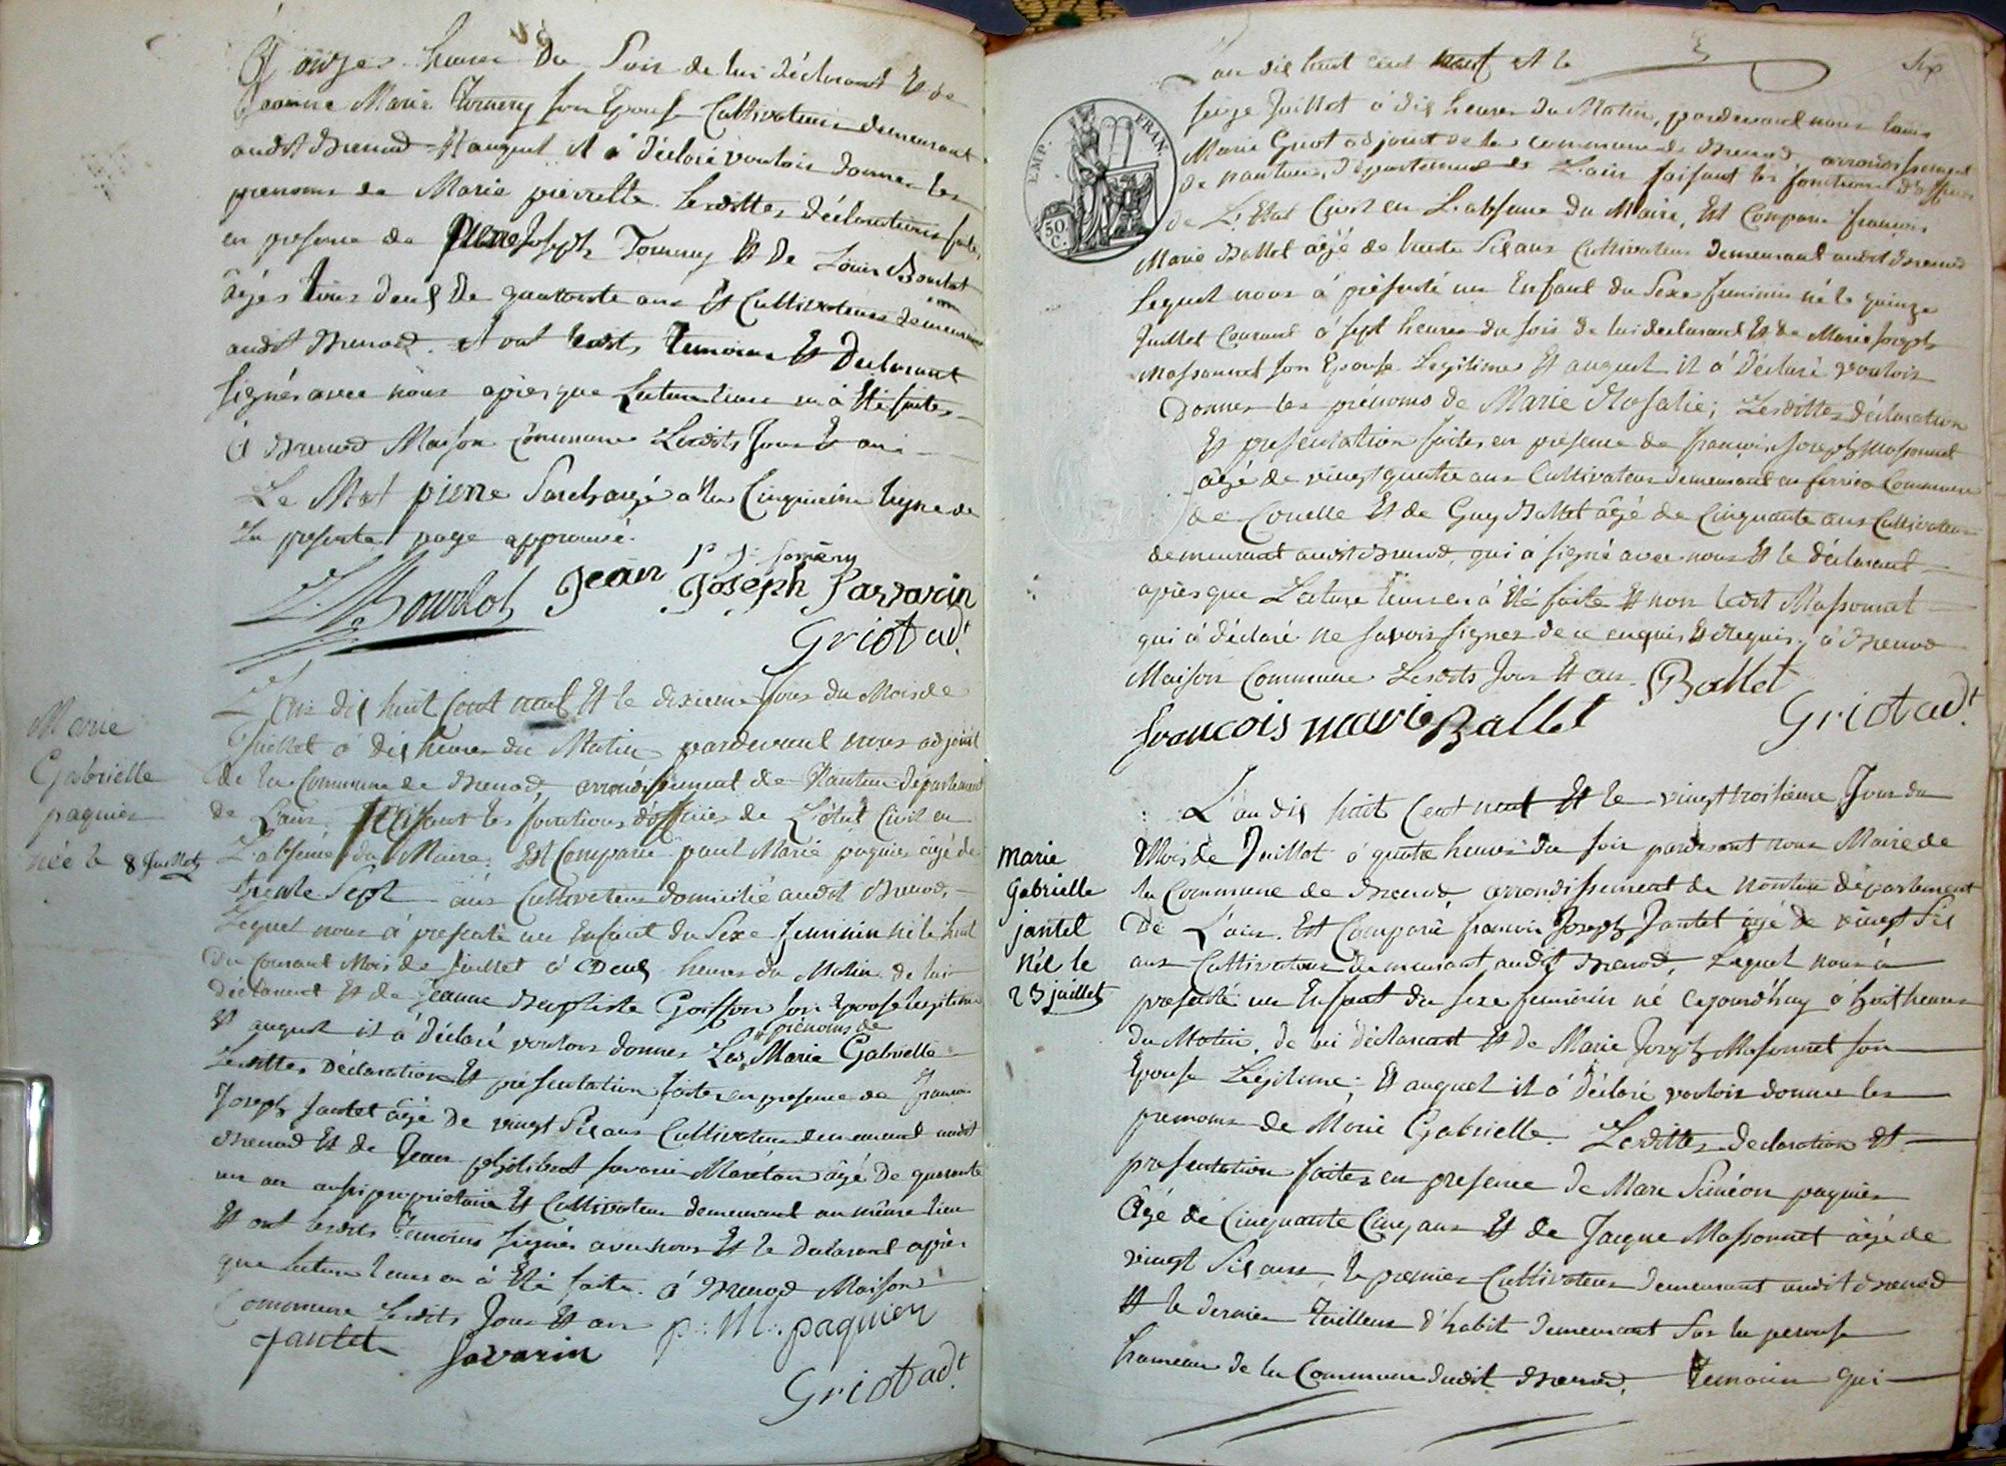 A onze heures du Soir de lui déclarant Et de
Jeanne Marie Tornery son Epouse Cultivateurs demeurant
audit Brenod Et auquel il à déclaré vouloir donner les
prenoms de Marie pierrette. Lesdittes déclarations faites
en presence de pierre Joseph Tornery Et de Louis Bourdot
âgés tous deux de quarante ans Et Cultivateurs demeurant
audit Brenod. et ont lesdits temoins Et Déclarant
signés avec nous après que Lecture leur en à Eté faite
à Brenod Maison Commune Lesdits Jour Et an
Le Mot pierre Surchargé a la Cinquieme ligne de
La presente page approuvé.
P J tornery
L. Bourdot Jean Joseph Savarin
Griot adt.
Marie
Gabrielle
paquier
née le 8 Juillet
L'an dix huit Cent neuf Et le dixieme Jour du Mois de
Juillet à dix heures du Matin pardevant nous adjoint
de la Commune de Brenod, arrondissement de Nantua Département
de L'ain. faisant les fonctions d'officier de L'état Civil en
L'absence du Maire. Est Comparu paul Marie paquier âgé de
trente Sept ans Cultivateur domicilié audit Brenod,
Lequel nous à presenté un Enfant du Sexe feminin né le huit
du Courant Mois de Juillet à Deux heures du Matin de lui
déclarant Et de Jeanne Baptiste Goiffon son Epouse legitime
Et auquel il à déclaré vouloir donner Les prénoms de Marie Gabrielle
Lesdittes Déclaration Et présentation faites en presence de François
Joseph Jantet âgé de vingt Six ans Cultivateur demeurant audit
Brenod Et de Jean philibert Savarin Maréton âgé de quarante
un an aussi propriétaire Et Cultivateur demeurant au même lieu
Et ont lesdits temoins signés avec nous Et le Déclarant après
que lecture leurs en à Eté faite. à Brenod Maison
Commune Lesdits Jour Et an
Jantet Savarin p: M: paquier
Griot adt.
Six
L'an dix huit cent neuf et le
seize Juillet à dix heures du Matin, pardevant nous Louis
Marie Griot adjoint de la commune de Brenod, arrondissement
de nantua, département de L'ain faisant les fonctions d'officier
de L'Etat Civil en L'absence du Maire, Est Comparu françois
Marie Ballet âgé de trente Six ans Cultivateur demeurant audit Brenod
Lequel nous à présenté un Enfant du Sexe feminin né le quinze
Juillet Courant à sept heures du soir de lui declarant Et de Marie Joseph
Massonnet son Epouse Legitime Et auquel il à déclaré vouloir
Donner les prénoms de Marie Rosalie; Lesdittes déclaration
Et presentation faites en présence de françois Joseph Massonnet
âgé de vingt quatre ans Cultivateur demeurant en ferriere Commune
de Corcelle Et de Guy Ballet âgé de Cinquante ans Cultivateur
demeurant audit Brenod, qui à signé avec nous Et le déclarant
après que Lecture leurs en à Eté faite Et non ledit Massonnet
qui à déclaré ne savoir signer de ce enquis Et Requis, à Brenod
Maison Commune Lesdits Jour Et an
EMP. FRAN
50 C.
G Ballet
françois marie Ballet
Griot adt.
marie
Gabrielle
jantet
née le
23 juillet
L'an dix huit Cent neuf Et le vingt troisieme Jour du
Mois de Juillet à quatre heures du soir pardevant nous Maire de
la Commune de Brenod, arrondissement de Nantua département
De L'ain. Est Comparu francois Joseph Jantet âgé de vingt Six
ans Cultivateur demeurant audit Brenod, Lequel nous à
presenté un Enfant du sexe feminin né cejourd'huy à huit heures
du Matin, de lui déclarant Et de Marie Joseph Massonnet son
Epouse Légitime; Et auquel il à déclaré vouloir donner les
prenoms de Marie Gabrielle. Lesdittes declaration Et
presentation faites en presence de Marc Siméon paquier
Agé de Cinquante Cinq ans Et de Jacque Massonnet âgé de
vingt Six ans, le premier Cultivateur demeurant audit Brenod
Et le dernier tailleur d'habit demeurant sur la perouse
hameau de la Commune dudit Brenod. temoins qui